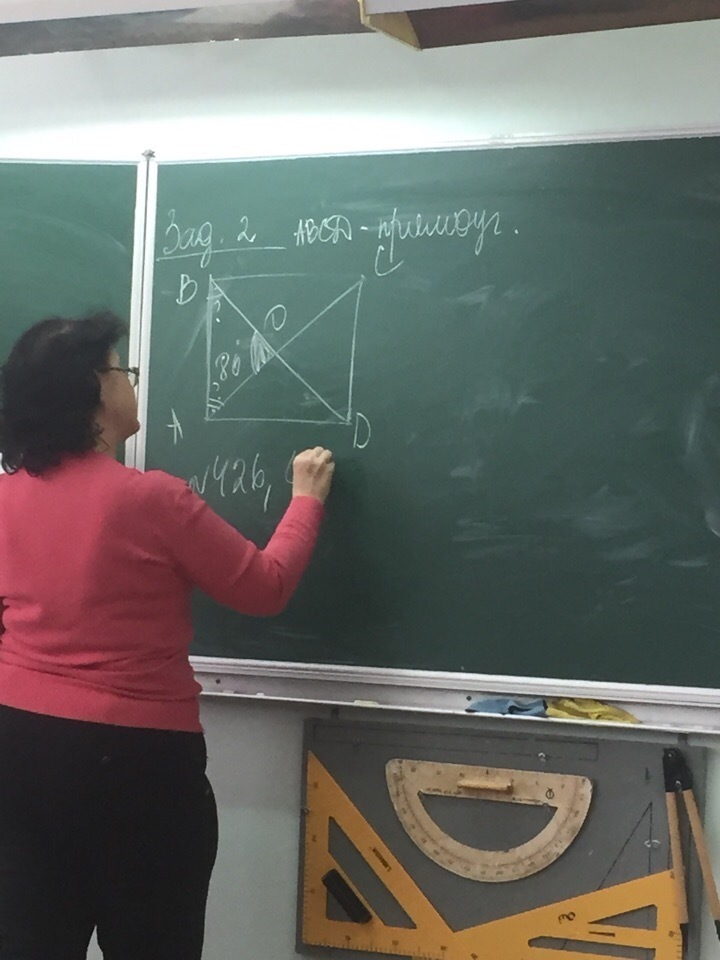 Зад. 2 ABCD - прямоуг.
B
C
?
O
80°
?
A
D
№426,